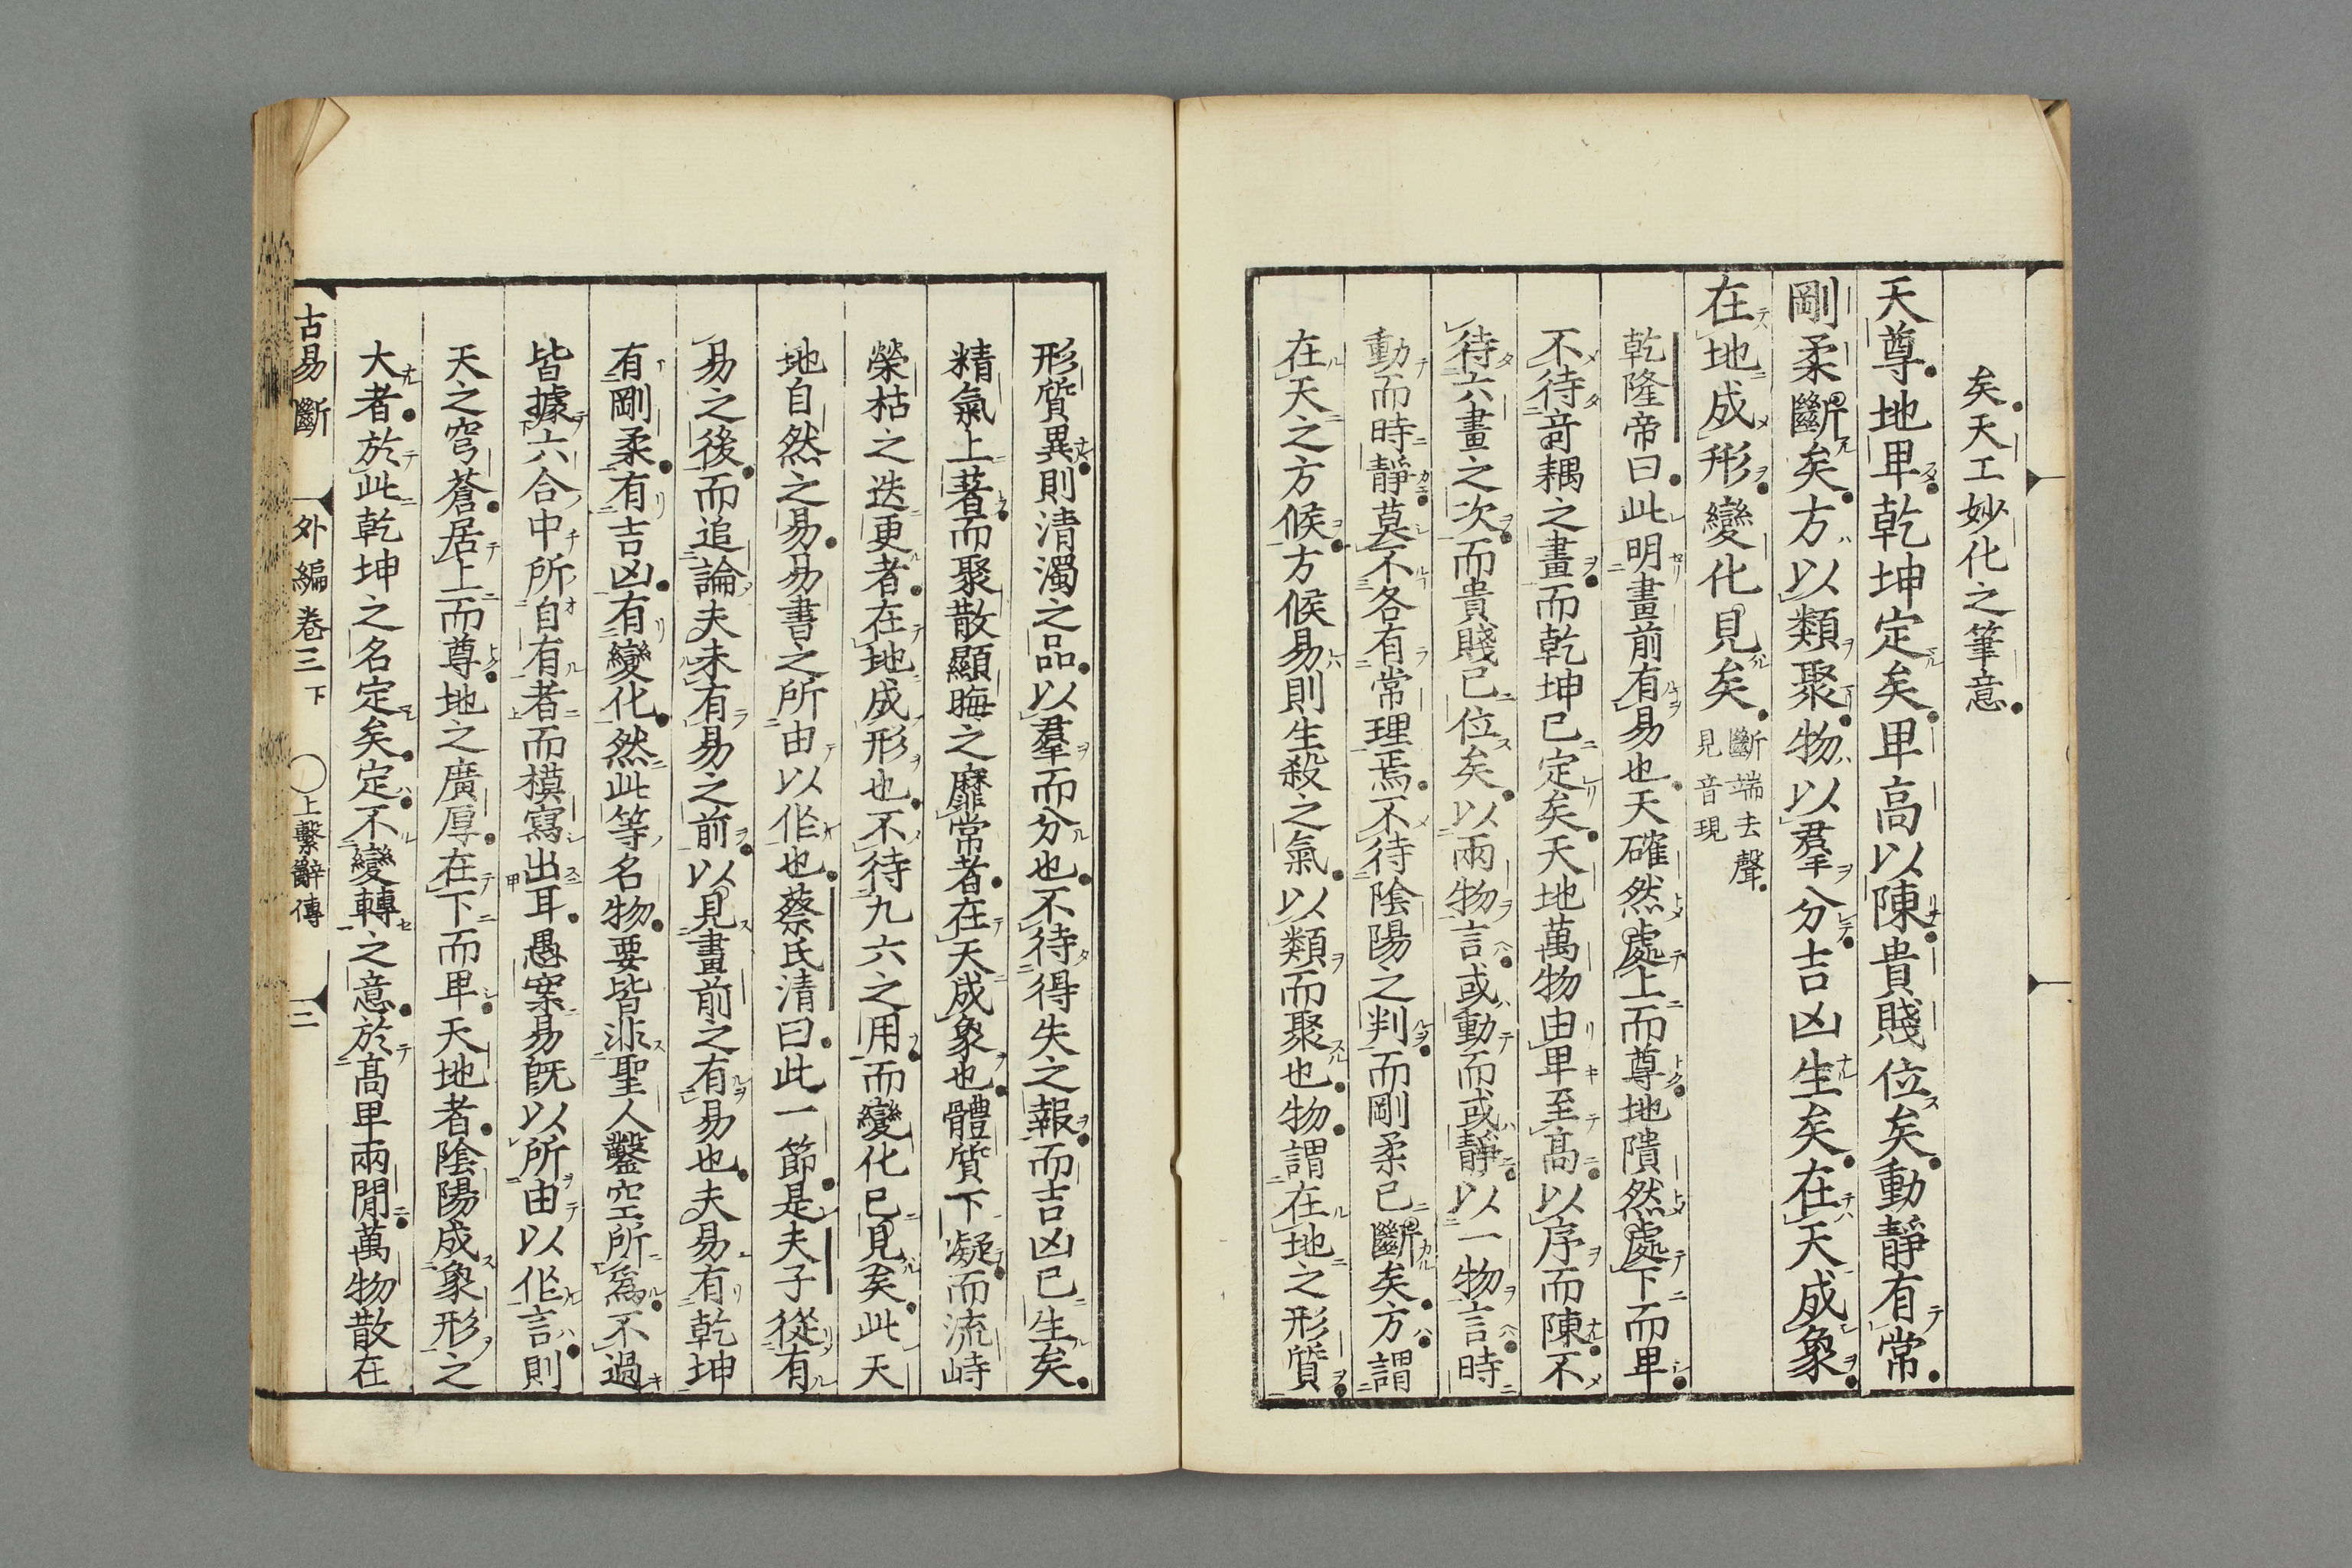 矣天工妙化之筆意
天尊地卑乾坤定矣卑高以陳貴賤位矣動靜有常
剛柔斷矣方以類聚物以羣分吉凶生矣在天成象
在地成形變化見矣斷端去聲
見音現
乾隆帝曰此明畫前有易也天確然處上而尊地隤然處下而卑
不待奇耦之畫而乾坤已定矣天地萬物由卑至高以序而陳不
待六畫之次而貴賤已位矣以兩物言或動而或靜以一物言時
動而時靜莫不各有常理焉不待陰陽之判而剛柔已斷矣方謂
在天之方候方候易則生殺之氣以類而聚也物謂在地之形質
形質異則清濁之品以羣而分也不待得失之報而吉凶已生矣
精氣上著而聚散顯晦之靡常者在天成象也體質下凝而流峙
榮枯之迭更者在地成形也不待九六之用而變化已見矣此天
地自然之易易書之所由以作也蔡氏清曰此一節是夫子從有
易之後而追論夫未有易之前以見畫前之有易也夫易有乾坤
有剛柔有吉凶有變化然此等名物要皆非聖人鑿空所爲不過
皆據六合中所自有者而模寫出耳愚案易既以所由以作言則
天之穹蒼居上而尊地之廣厚在下而卑天地者陰陽成象形之
大者於此乾坤之名定矣定不變轉之意於高卑兩閒萬物散在
古易斷 外編卷三下 ○上繫辭傳 三